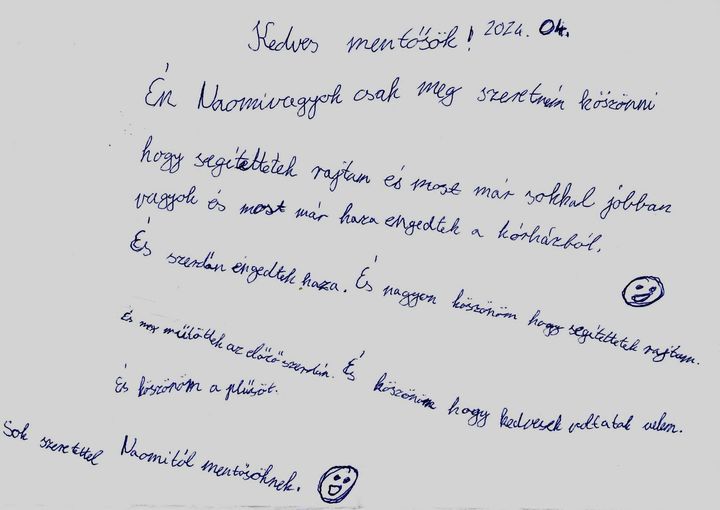 Kedves mentősök! 2024. 04.
Én Naomivagyok csak meg szeretnén köszönni
hogy segítettetek rajtam és most már sokkal jobban
vagyok és most már haza engedtek a kórházból.
És szerdán engedtek haza. És nagyon köszönöm hogy segítettetek rajtam.
És műtöttek az előző szerdán. És köszönöm hogy kedvesek voltatok velem.
És köszönöm a plüsöt.
Sok szeretettel Naomitól mentősöknek.